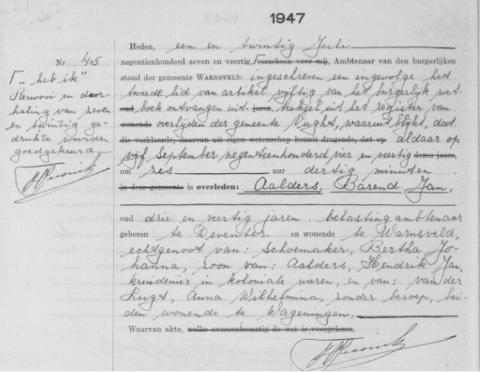 1947
Nr 45
Γ „heb ik"
Rewooi en door-
haling van zeven
en twintig ge-
drukte woorden
goedgekeurd.
Heden, een en twintig Juli
negentienhonderd zeven en veertig, verscheen voor mij, Ambtenaar van den burgerlijken
stand der gemeente WARNSVELD: ingeschreven een ingevolge het
tweede lid van artikel vijftig van het burgerlijk wet-
oud, boek ontvangen uit jaren, treksel uit het register van
wonende overlijden der gemeente Vught, waaruit blijkt, dat
die verklaarde, daarvan uit eigen wetenschap kennis dragende, dat op aldaar op
vijf September negentienhonderd vier en veertig dezes jaars,
om zes uur dertig minuten
in deze gemeente is overleden: Aalders, Barend Jan,
oud drie en veertig jaren belastingambtenaar
geboren te Deventer en wonende te Warnsveld,
echtgenoot van: Schoemaker, Bertha Jo-
hanna, zoon van: Aalders, Hendrik Jan,
kruidenier in koloniale waren, en van: van der
Lugt, Anna Wilhelmina, zonder beroep, bei-
den wonende te Wageningen.
Waarvan akte, welke overeenkomstig de wet is voorgelezen.